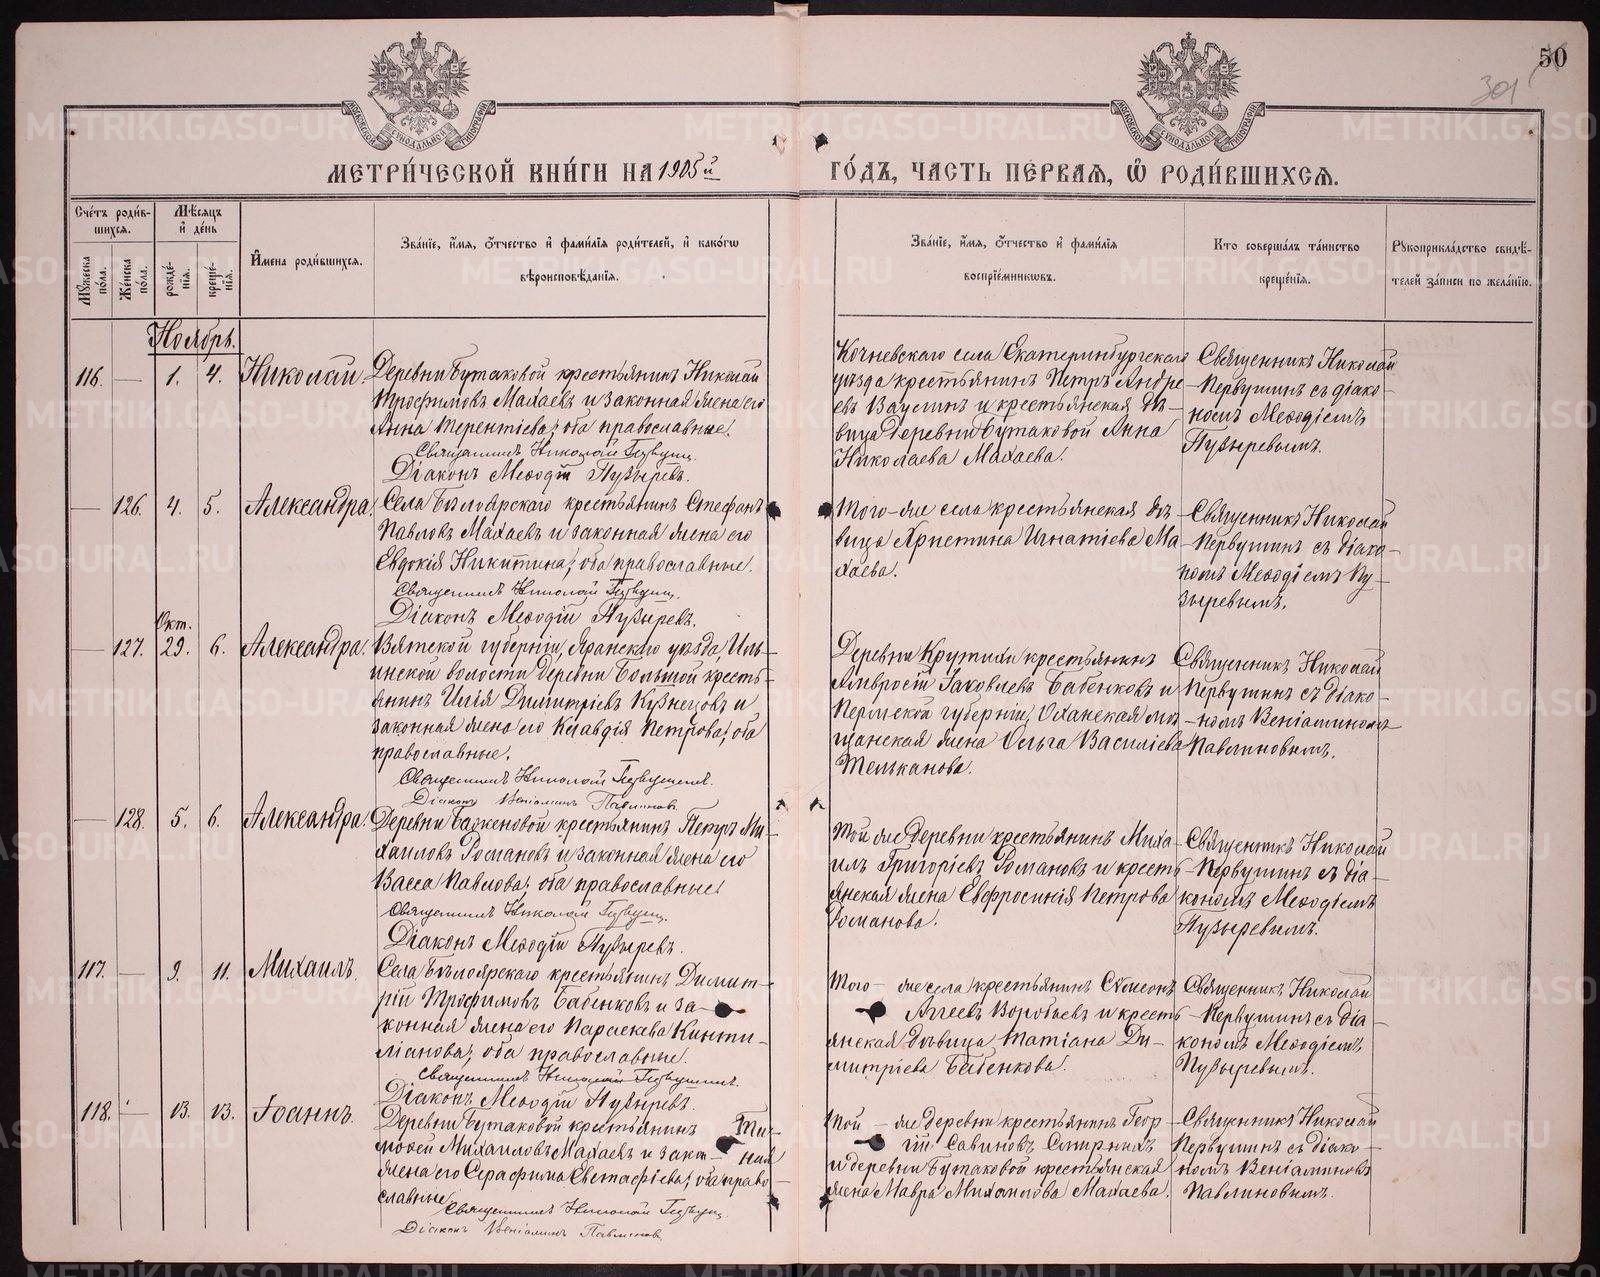 50
301
МОСКОВСКОЙ СѴНОДАЛЬНОЙ ТИПОГРАФІИ
МОСКОВСКОЙ СѴНОДАЛЬНОЙ ТИПОГРАФІИ
МЕТРИ́ЧЕСКОЙ КНИ́ГИ НА 1905й ГО́ДЪ, ЧАСТЬ ПЕ́РВАЯ, Ѽ РОДИ́ВШИХСЯ.
Сче́тъ роди́в-
шихся.
Мѣ́сяцъ
и҆ де́нь
Му́жеска по́ла.
Же́нска по́ла.
рожде́-
нїя.
креще́-
нїя.
И҆мена роди́вшихся.
Зва́нїе, и҆́мя, ѻ҆́тчество и҆ фами́лїя роди́телей, и҆ како́гѡ
вѣроисповѣ́данїя.
Зва́нїе, и҆́мя, ѻ҆́тчество и҆ фами́лїя
воспрїе́мникѡвъ.
Кто соверша́лъ та́инство
креще́нїя.
Рукоприкла́дство свидѣ́-
телей за́писи по жела́нїю.
Ноябрь.
116. — 1. 4. Николай.
Деревни Бутаковой крестьянинъ Николай
Трофимовъ Махаевъ и законная жена его
Анна Терентіева; оба православные.
Священникъ Николай Первушин.
Діаконъ Меѳодій Пузыревъ.
Кочневскаго села Екатеринбургскаго
уѣзда крестьянинъ Петръ Андре
евъ Ваулинъ и крестьянская дѣ-
вица деревни Бутаковой Анна
Николаева Махаева.
Священникъ Николай
Первушинъ съ діако-
номъ Меѳодіемъ
Пузыревымъ.
— 126. 4. 5. Александра.
Села Бѣлоярскаго крестьянинъ Стефанъ
Павловъ Махаевъ и законная жена его
Евдокія Никитина; оба православные.
Священникъ Николай Первушин.
Діаконъ Меѳодій Пузыревъ.
Того-же села крестьянская дѣ-
вица Христина Игнатіева Ма-
хаева.
Священникъ Николай
Первушинъ съ діако-
номъ Меѳодіемъ Пу-
зыревымъ.
Окт.
— 127. 29. 6. Александра.
Вятской губерніи, Яранскаго уѣзда, Иль-
инской волости деревни Большой кресть-
янинъ Илія Димитріевъ Кузнецовъ и
законная жена его Клавдія Петрова; оба
православные.
Священникъ Николай Первушинъ.
Діаконъ Веніаминъ Павлиновъ.
Деревни Крутихи крестьянинъ
Амвросій Іаковлевъ Бабенковъ и
Пермской губерніи, Оханская мѣ-
щанская жена Ольга Василіева
Тельканова.
Священникъ Николай
Первушинъ съ діако-
номъ Веніаминомъ
Павлиновымъ.
— 128. 5. 6. Александра.
Деревни Баженовой крестьянинъ Петръ Ми-
хаиловъ Романовъ и законная жена его
Васса Павлова; оба православные.
Священникъ Николай Первушин.
Діаконъ Меѳодій Пузыревъ.
Той же деревни крестьянинъ Миха-
илъ Григоріевъ Романовъ и кресть-
янская жена Евфросинія Петрова
Романова.
Священникъ Николай
Первушинъ съ діа-
кономъ Меѳодіемъ
Пузыревымъ.
117. — 9. 11. Михаилъ.
Села Бѣлоярскаго крестьянинъ Димит-
рій Трофимовъ Бабенковъ и за-
конная жена его Параскева Кинти-
ліанова; оба православные.
Священникъ Николай Первушинъ.
Діаконъ Меѳодій Пузыревъ.
Того-же села крестьянинъ Сѵмеонъ
Аггеевъ Воробьевъ и кресть
янская дѣвица Татіана Ди-
митріева Бабенкова.
Священникъ Николай
Первушинъ съ діа-
кономъ Меѳодіемъ
Пузыревымъ.
118. — 13. 13. Іоаннъ.
Деревни Бутаковой крестьянинъ Ти-
моѳей Михаиловъ Махаевъ и закон-ная
жена его Серафима Евстафіева; оба право-
славные.
Священникъ Николай Первушин.
Діаконъ Веніаминъ Павлиновъ.
Той-же деревни крестьянинъ Геор
гій Савиновъ Смирныхъ
и деревни Бутаковой крестьянская
жена Мавра Михаилова Махаева.
Священникъ Николай
Первушинъ съ діако-
номъ Веніаминомъ
Павлиновымъ.
METRIKI.GASO-URAL.RU